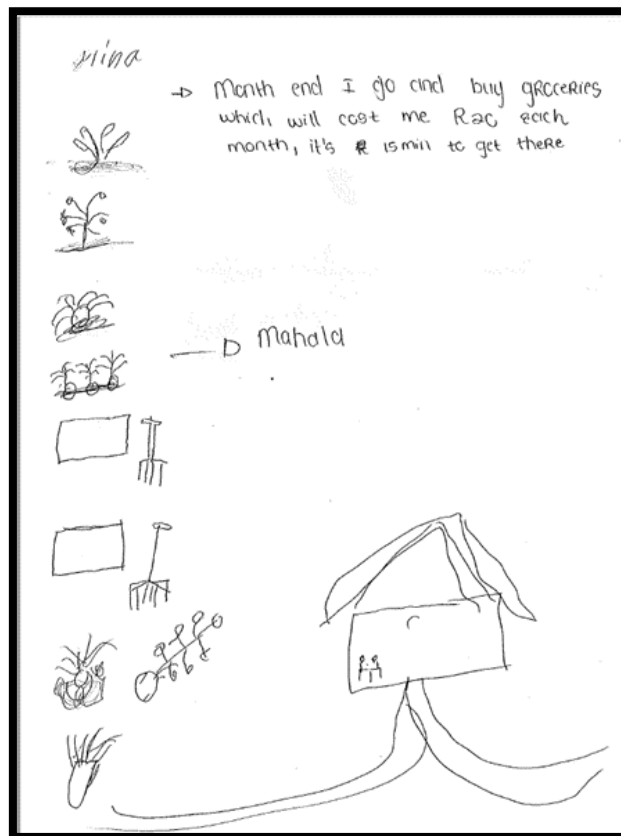 → Month end I go and buy groceries
which will cost me R20 each
month, it's 15 min to get there
→ Mahala